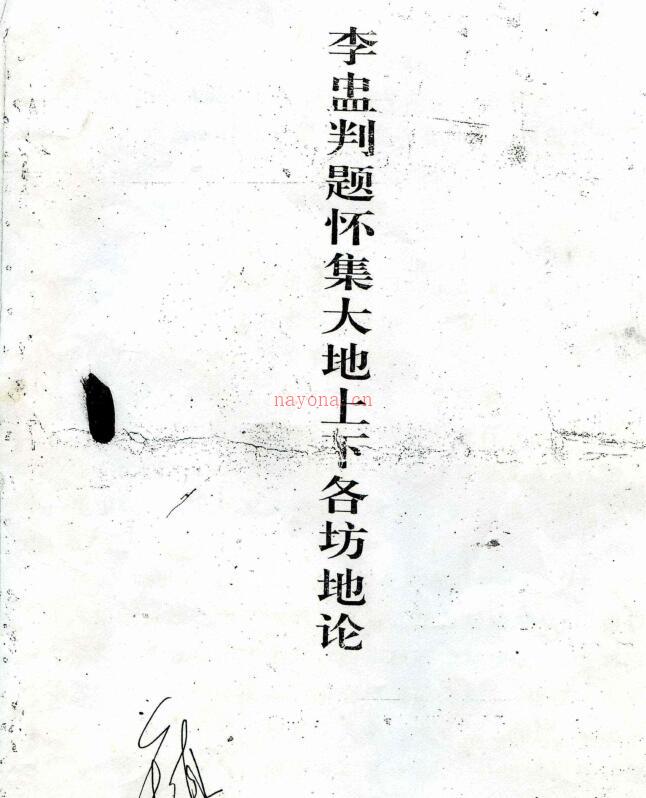 李盅判题怀集大地上下各坊地论
nayona.cn